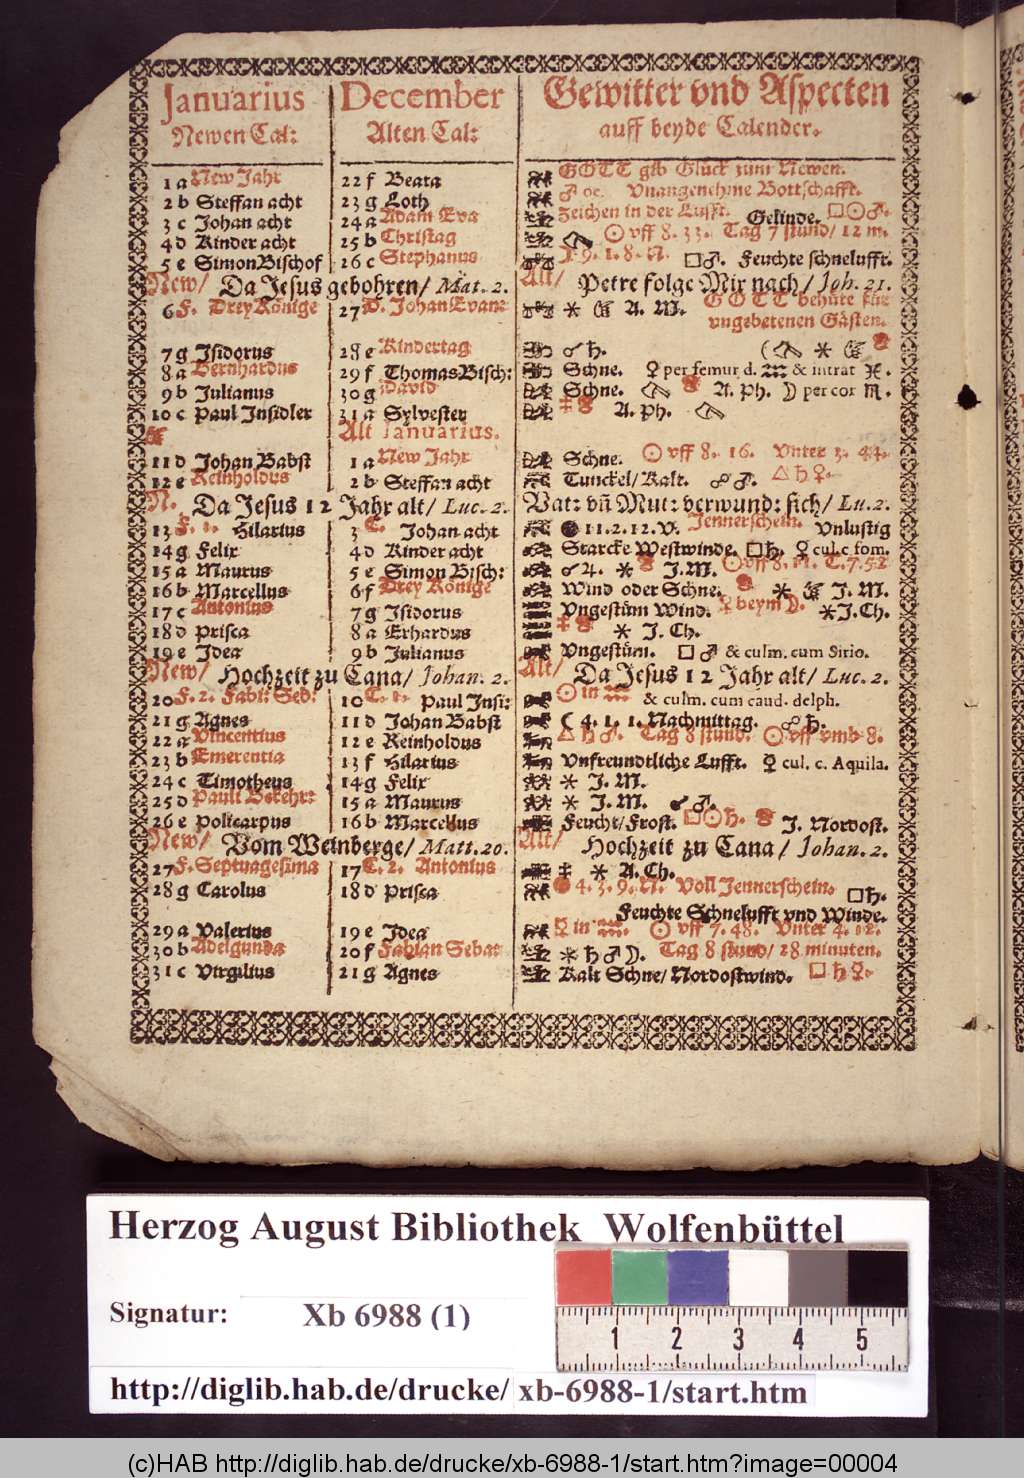 Januarius December Gewitter vnd Aspecten
Newen Cal: Alten Cal: auff beyde Calender.
1 a New Jahr 22 f Beata GOTT geb Glück zum Newen.
2 b Steffan acht 23 g Loth ♂ oc. Vnangenehme Bottschafft.
3 c Johan acht 24 a Adam Eva Zeichen in der Lufft. Gelinde. □☉♂.
4 d Kinder acht 25 b Christag ☉ vff 8. 33. Tag 7 stund/ 12 m.
5 e Simon Bischof 26 c Stephanus 9. 1. 8. N. □♂. Feuchte schneluffr.
New/ Da Jesus gebohren/ Mat. 2. Alt/ Petre folge Mir nach/ Joh. 21.
6 F. Drey Könige 27 D. Johan Evang ⚹ A. M. GOTT behüte für
vngebetenen Gästen.
7 g Isidorus 28 e Kindertag ☌ ♄. ⚹
8 a Bernhardus 29 f Thomas Bisch: Schne. ♀ per femur d. ♒ & intrat ♓.
9 b Julianus 30 g David Schne. A. Ph. ☽ per cor ♏.
10 c Paul Insidler 31 a Sylvester A. Ph.
Alt Januarius.
11 d Johan Babst 1 a New Jahr Schne. ☉ vff 8. 16. Vnter 3. 44.
12 e Reinholdus 2 b Steffan acht Tunckel/ Kalt. ☍♂. △♄♀.
N. Da Jesus 12 Jahr alt/ Luc. 2. Vat: vñ Mut: verwund: sich/ Lu. 2.
13 F. 1. Hilarius 3 C. Johan acht 11. 2. 12. V. Jennerschein. Vnlustig
14 g Felix 4 d Kinder acht Starcke Westwinde. □♄. ♀ cul. c fom.
15 a Maurus 5 e Simon Bisch: ☌♃. ⚹ J. M. ☉ vff 8. 11. T. 7. 52
16 b Marcellus 6 f Drey Könige Wind oder Schne. ⚹ J. M.
17 c Antonius 7 g Isidorus Vngestüm Wind. ♀ beym ☽. ⚹ J. Ch.
18 d Prisca 8 a Erhardus ⚹ J. Ch.
19 e Idea 9 b Julianus Vngestüm. □♂ & culm. cum Sirio.
New/ Hochzeit zu Cana/ Johan. 2. Alt/ Da Jesus 12 Jahr alt/ Luc. 2.
20 F. 2. Fabi: Seb: 10 C. 1. Paul Insi: ☉ in ♒ & culm. cum caud. delph.
21 g Agnes 11 d Johan Babst ☾ 4. 1. 1. Nachmittag. ☍♄.
22 a Vincentius 12 e Reinholdus △♄♂. Tag 8 stund. ☉ vff vmb 8.
23 b Emerentia 13 f Hilarius Vnfreundtliche Lufft. ♀ cul. c. Aquila.
24 c Timotheus 14 g Felix ⚹ J. M.
25 d Pauli Bekehr: 15 a Maurus ⚹ J. M. ♂.
26 e Policarpus 16 b Marcellus Feucht/ Frost. □☉♄. J. Nordost.
New/ Vom Weinberge/ Matt. 20. Alt/ Hochzeit zu Cana/ Johan. 2.
27 F. Septuagesima 17 C. 2. Antonius ⚹ A. Ch.
28 g Carolus 18 d Prisca 4. 3. 9. N. Voll Jennerschein. □♄.
Feuchte Schnelufft vnd Winde.
29 a Valerius 19 e Idea ☿ in ♒. ☉ vff 7. 48. Vnter 4. 12.
30 b Adelgunda 20 f Fabian Sebas ⚹♄♂☽. Tag 8 stund/ 28 minuten.
31 c Virgilius 21 g Agnes Kalt Schne/ Nordostwind. □♄♀.
Herzog August Bibliothek Wolfenbüttel
Signatur: Xb 6988 (1)
1 2 3 4 5
http://diglib.hab.de/drucke/ xb-6988-1/start.htm
(c)HAB http://diglib.hab.de/drucke/xb-6988-1/start.htm?image=00004